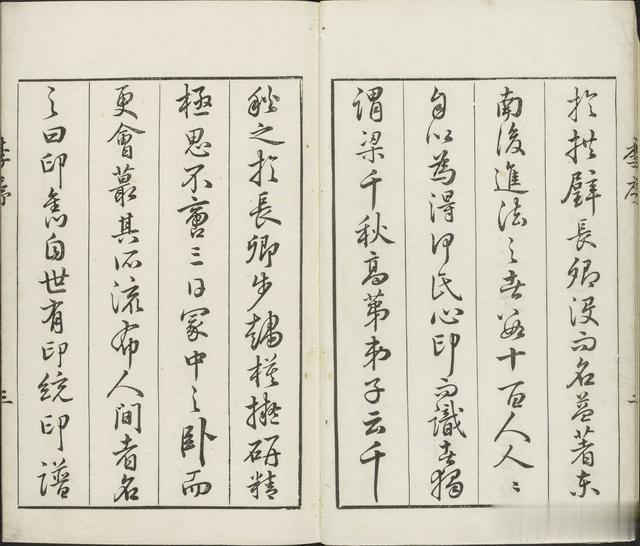 李序
二
於拱璧長卿没而名益著東
南後進法之者數十百人人〻
自以為得何氏心印而識者獨
謂梁千秋高第弟子云千
秋之於長卿步驟模擬研精
極思不啻三日冢中之卧而
更會蕞其所流布人間者名
之曰印雋自世有印統印譜
李序
三